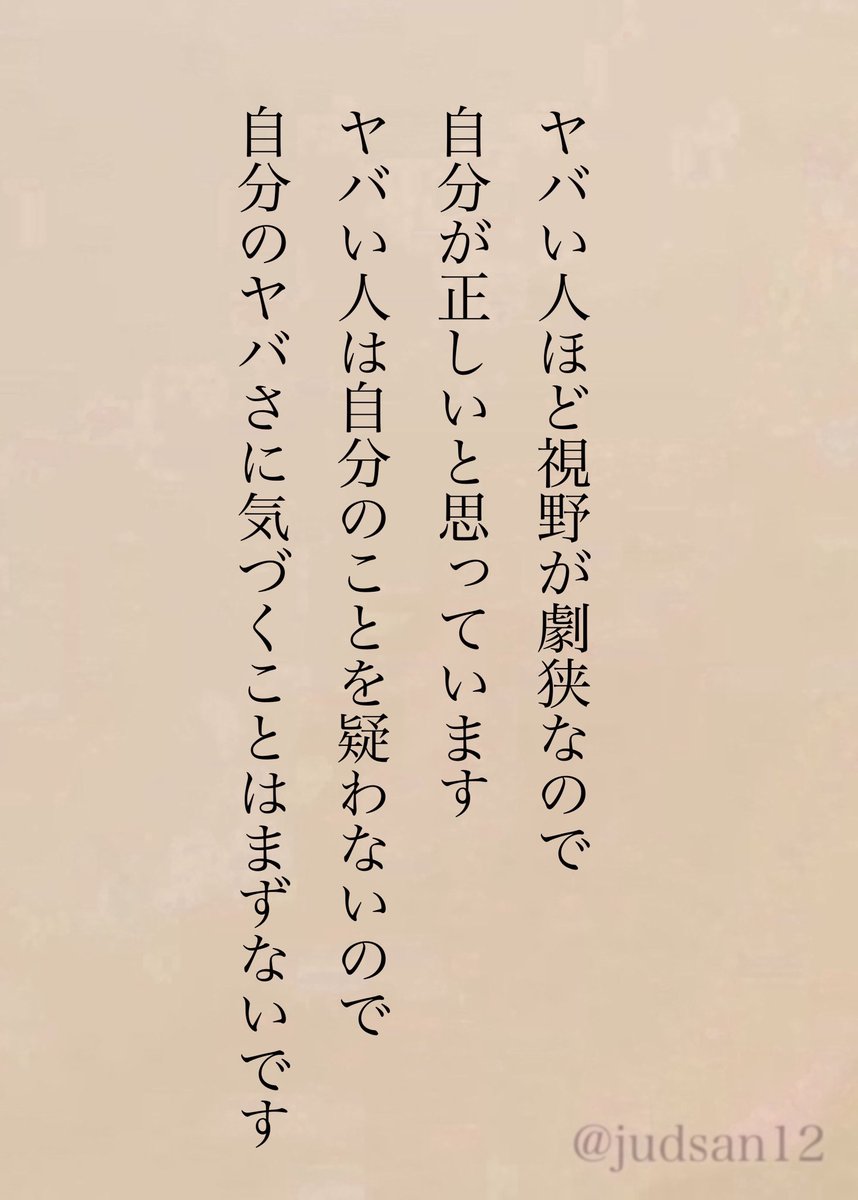 ヤバい人ほど視野が劇狭なので
自分が正しいと思っています
ヤバい人は自分のことを疑わないので
自分のヤバさに気づくことはまずないです
@judsan12